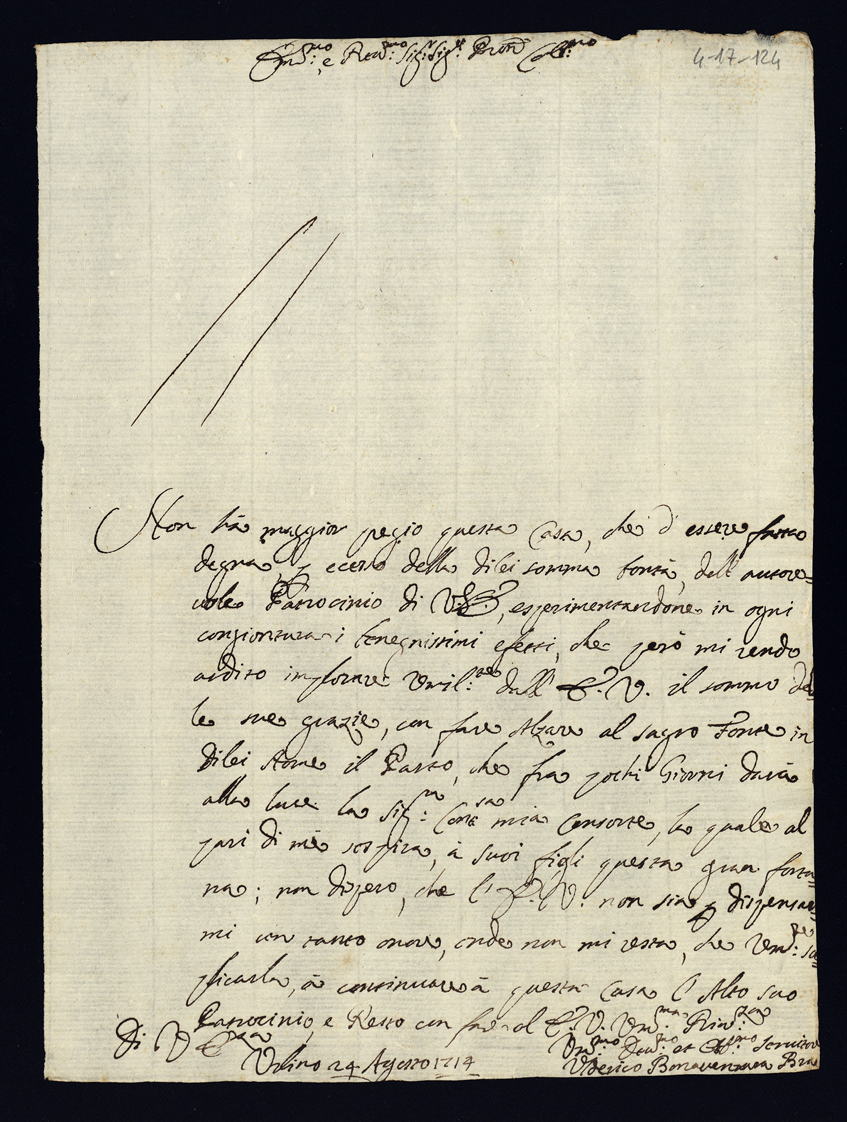 Em.mo e Rev.mo Sig.r Sig.r Pron Col.mo
4-17-124
Non hà maggior pregio questa Casa, che d'essere fatta
degna, p ecceso della dilei somma bontà, dell'autore=
uole Patrocinio di V.E., esperimentandone in ogni
congiontura i benegnissimi efetti, che però mi rendo
ardito implorare Umil.te dall'E.V. il sommo del
le sue grazie, con fare Alzare al sagro Fonte in
dilei Nome il Parto, che frà pochi Giorni darà
alla luce la Sig.ra Cont.sa mia Consorte, la quale al
pari di me sospira, à suoi figli questa gran fortu=
na; non dispero, che l'E.V. non sia p dispensar=
mi un tanto onore, onde non mi resta, che Um.te su=
plicarla, à continuare à questa Casa l'Alto suo
Patrocinio, e Resto con fare al E.V. Um.ma Riu.za
Di V E
Urbino 24 Agosto 1714
Um.mo Deu.mo et Obb.mo Seruitore
Uderico Bonauentura Bra